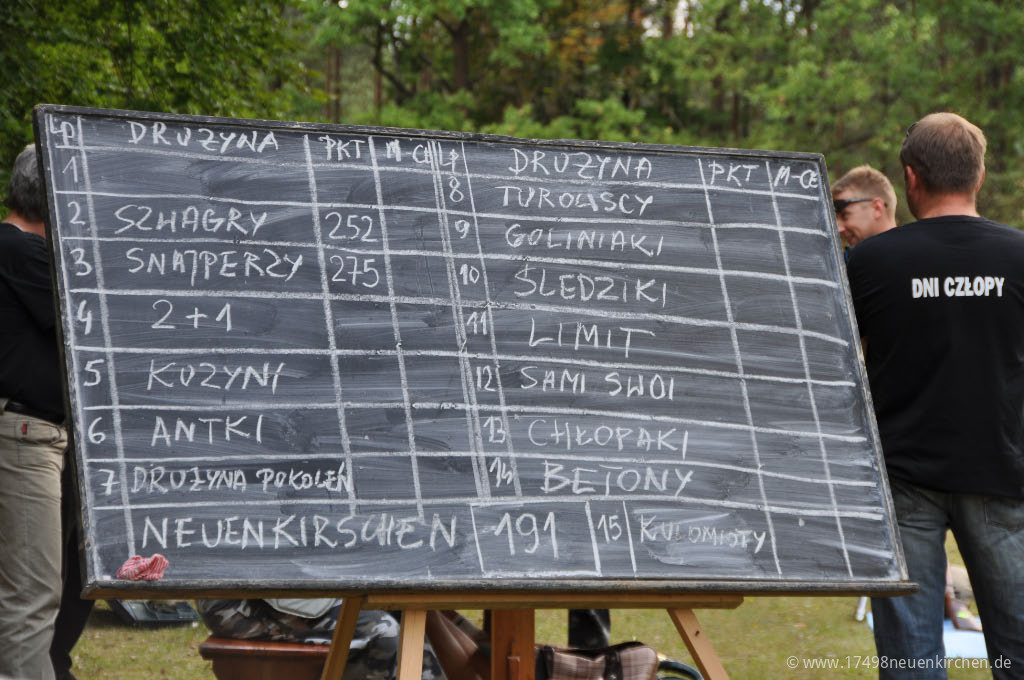 LP DRUŻYNA PKT M-CE LP DRUŻYNA PKT M-CE
1
8 TUROWSCY
2 SZWAGRY 252
9 GOLINIAKI
3 SNAJPERZY 275
10 ŚLEDZIKI
4 2+1
11 LIMIT
5 KUZYNI
12 SAMI SWOI
6 ANTKI
13 CHŁOPAKI
7 DRUŻYNA POKOLEŃ
14 BETONY
NEUENKIRSCHEN 191 15 KULOMIOTY
DNI CZŁOPY
© www.17498neuenkirchen.de